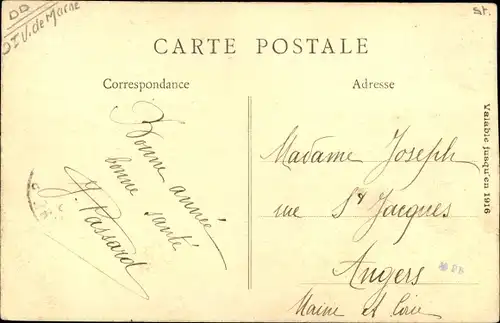 DD
D I V. de Marne
st.
CARTE POSTALE
Correspondance
Adresse
Bonne année
bonne santé
J. Passard
Madame Joseph
rue St Jacques
Angers
Maine et Loire
Valable jusqu'en 1916